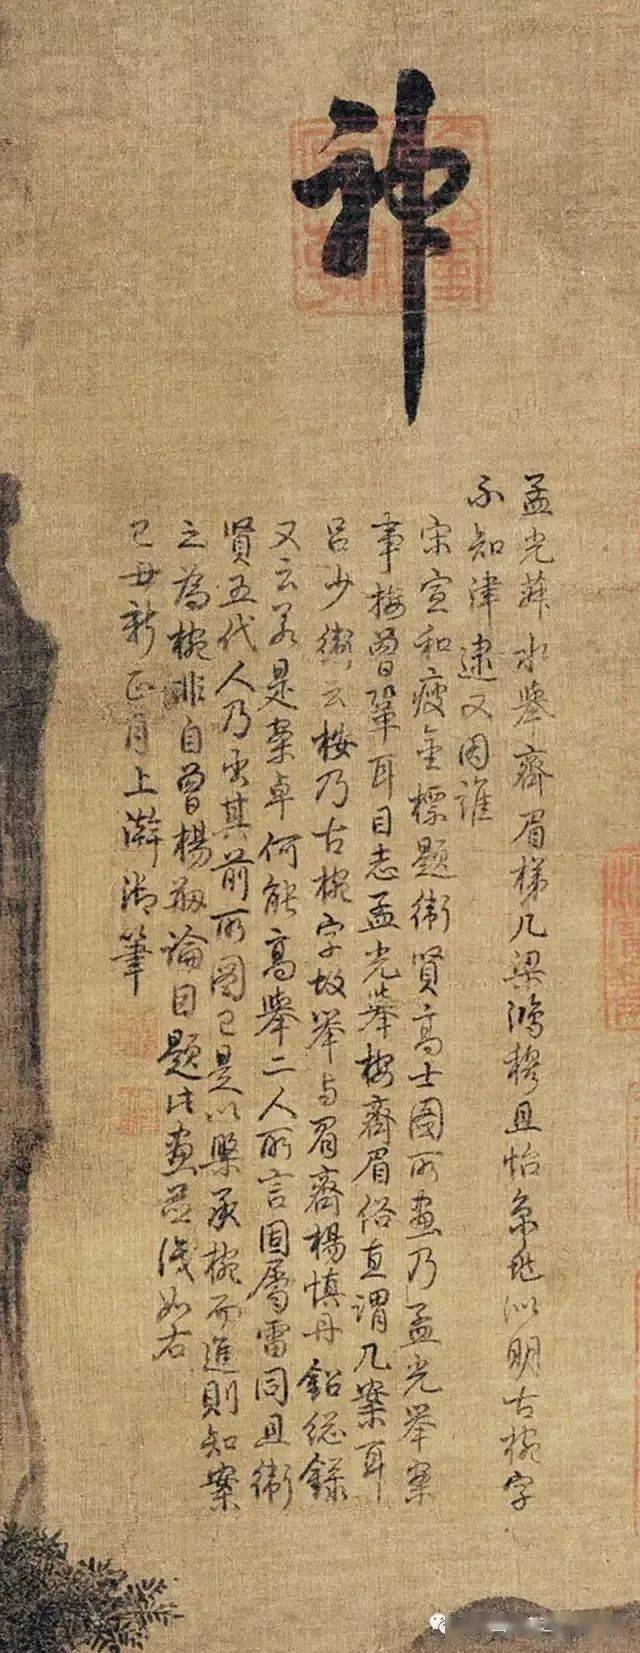 神
孟光蓱水舉齊眉梯几梁鴻穆且怡似明古椀字
不知津逮又因誰
宋宣和瘦金標題衛賢高士圖所畫乃孟光舉案
事按曾鞏耳目志孟光舉桉齊眉俗直謂几案耳
呂少衛云桉乃古椀字故舉与眉齊楊慎丹鉛總錄
又云若是案卓何能高舉二人所言固屬雷同且衛
賢五代人乃出其前所圖已是以槃承椀而進則知案
之為椀非自曾楊刱論因題此畫並識如右
己丑新正月上澣御筆